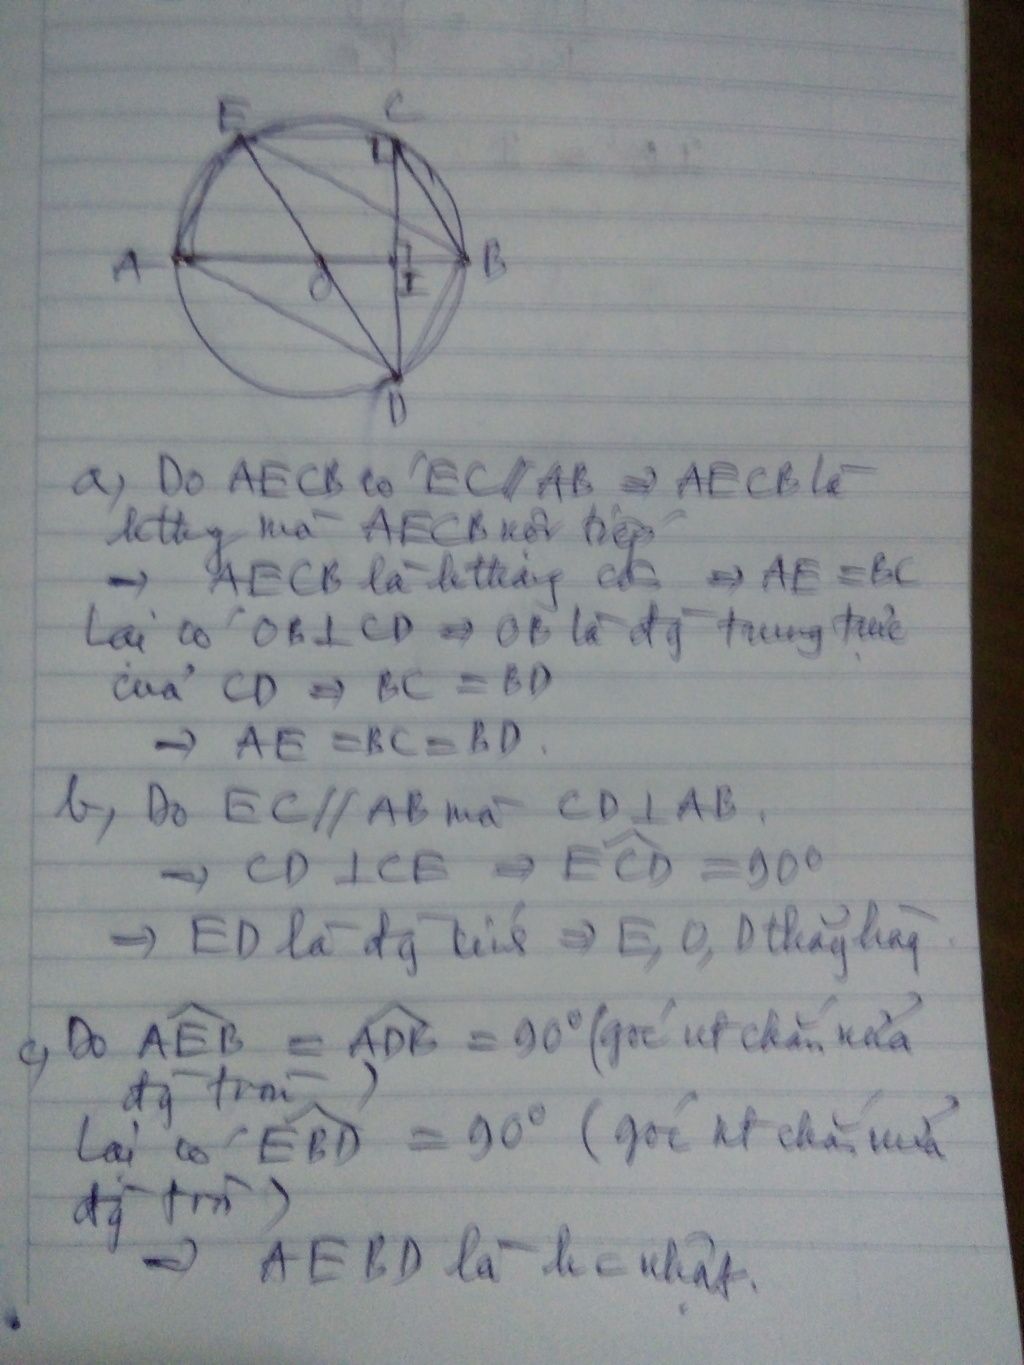 E C
A O I B
D
a, Do AECB có EC // AB ⇒ AECB là
hthg mà AECB nội tiếp
→ AECB là hthang cân ⇒ AE = BC
Lại có OB ⊥ CD ⇒ OB là đg trung trực
của CD ⇒ BC = BD
→ AE = BC = BD.
b, Do EC // AB mà CD ⊥ AB.
→ CD ⊥ CE ⇒ ECD^ = 90°
⇒ ED là đg kính ⇒ E, O, D thẳng hàng.
c, Do AEB^ = ADB^ = 90° (góc nt chắn nửa
đg tròn)
Lại có EBD^ = 90° (góc nt chắn nửa
đg tròn)
→ AEBD là h c nhật.